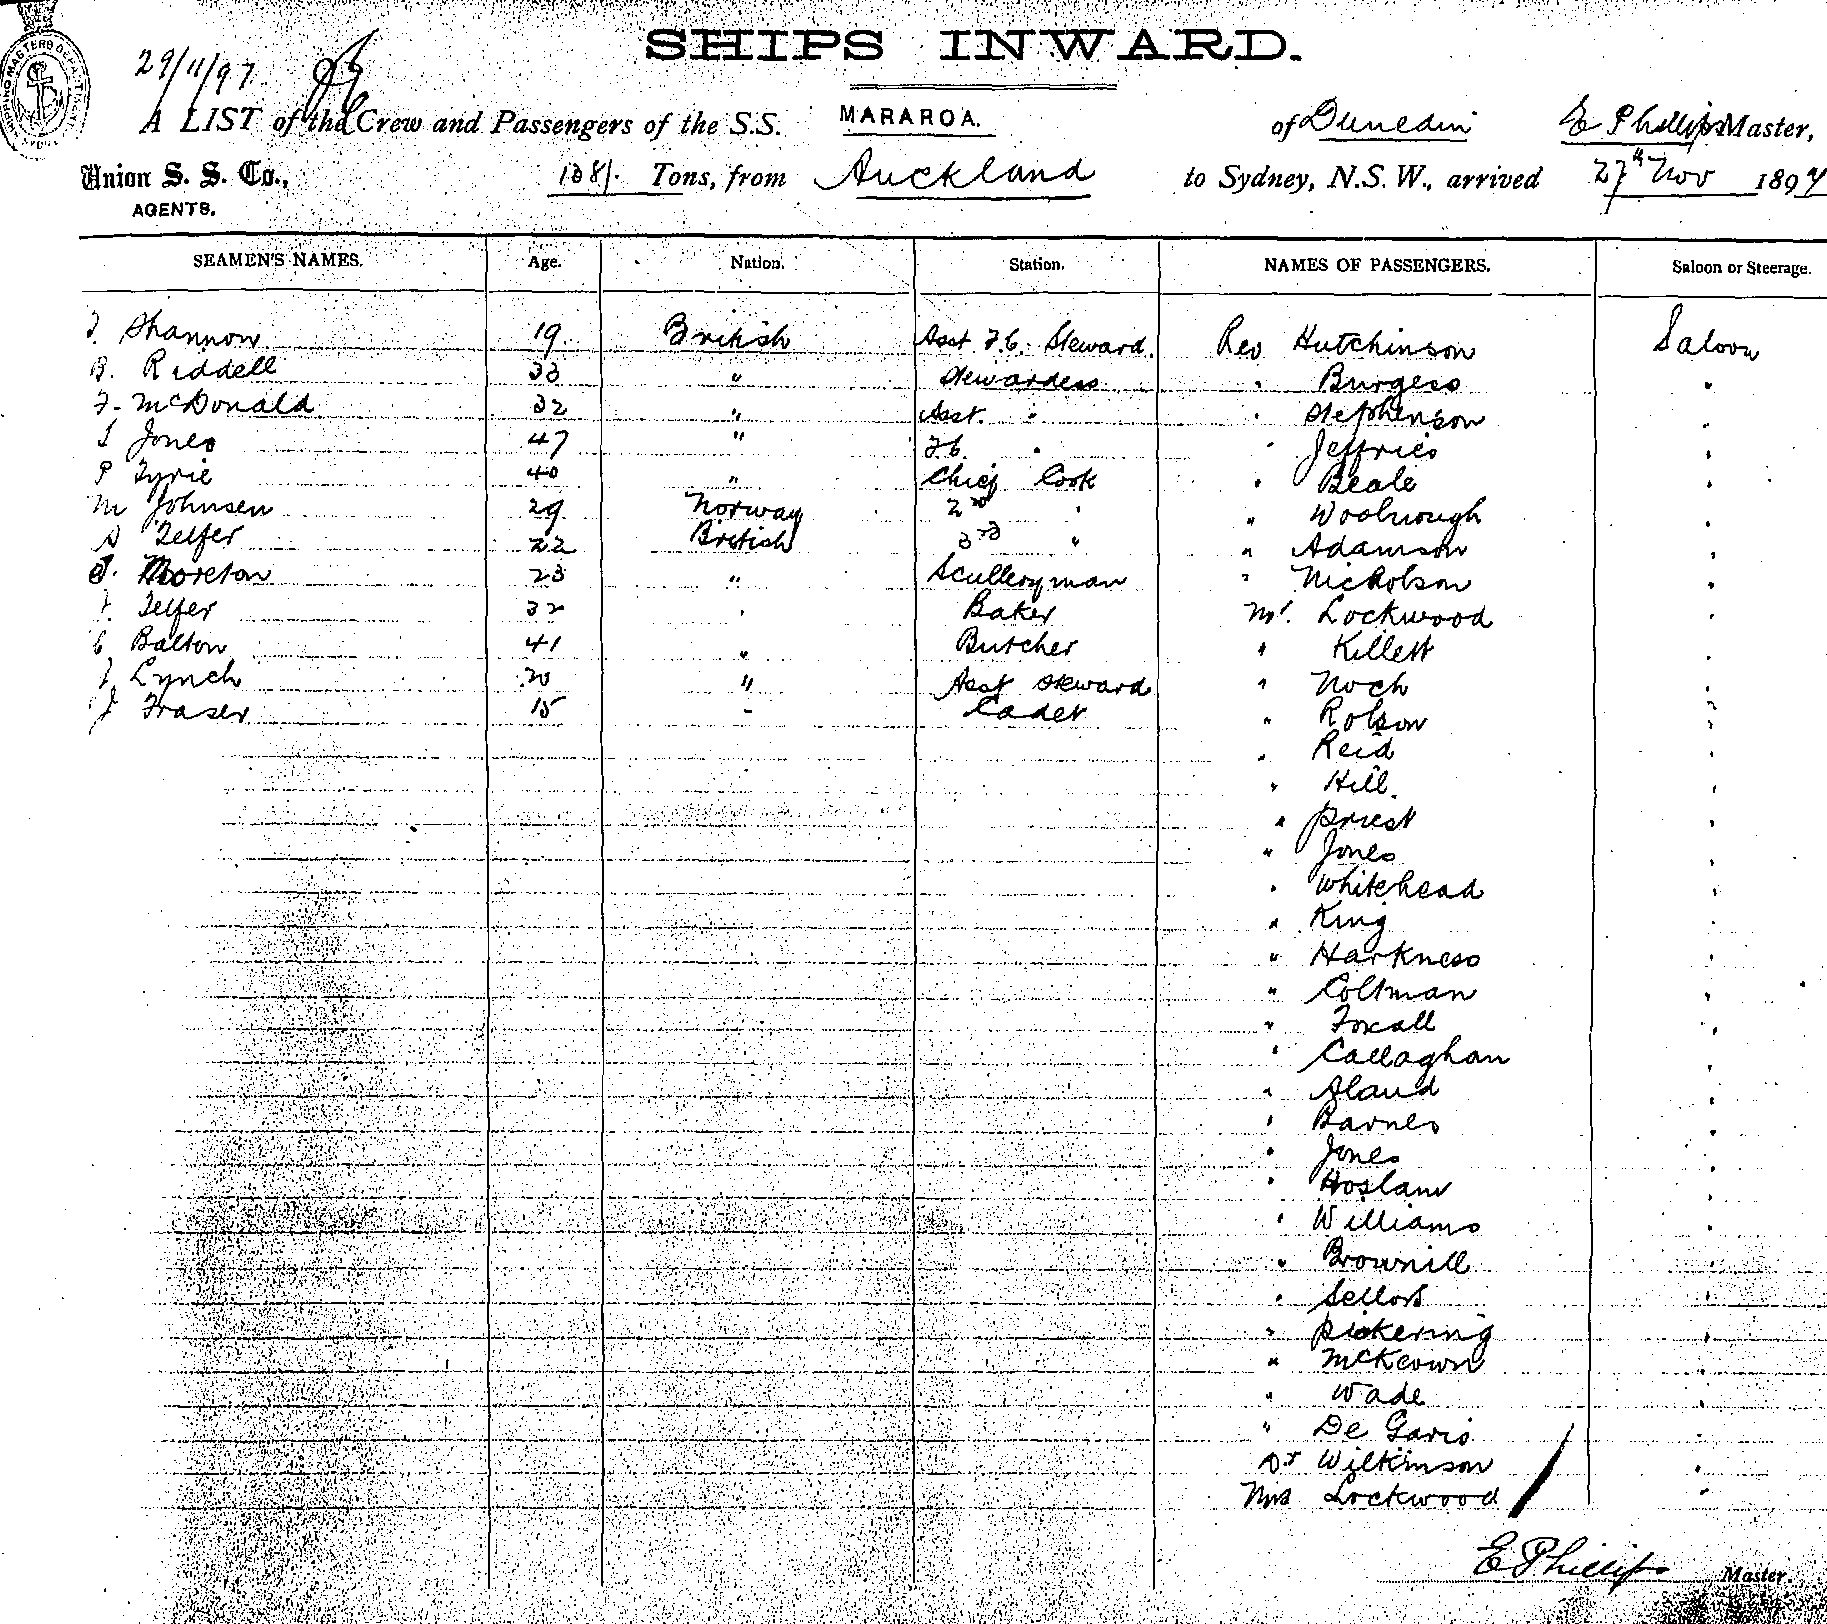 SHIPS INWARD.
29/11/97
A LIST of the Crew and Passengers of the S.S. MARAROA. of Dunedin E Phillips Master,
Union S. S. Co., 1381. Tons, from Auckland to Sydney, N.S.W., arrived 27th Nov 1897
AGENTS.
SEAMEN'S NAMES. Age. Nation. Station. NAMES OF PASSENGERS. Saloon or Steerage.
Shannon 19 British Asst F.C. Steward. Rev Hutchinson Saloon
B. Riddell 33 " Stewardess " Burgess "
F. McDonald 32 " Asst. " " Stephenson "
Jones 47 " F.C. " " Jeffries "
P Tyrie 40 " Chief Cook " Beale "
M Johnsen 29 Norway 2nd " " Woolnough "
A Telfer 22 British 3rd " " Adamson "
Moreton 23 " Sculleryman " Nicholson "
Telfer 32 " Baker Mr. Lockwood "
C Balton 41 " Butcher " Killett "
Lynch 20 " Asst Steward " Noch "
J Fraser 15 " Cadet " Rolson "
" Reid "
" Hill. "
" Priest "
" Jones "
" Whitehead "
" King "
" Harkness "
" Coltman "
" Foxall "
" Callaghan "
" Aland "
" Barnes "
" Jones "
" Hoslam "
" Williams "
" Brownill "
" Sellors "
" Pickering "
" McKeown "
" Wade "
" De Garis "
Dr Wilkinson "
Mrs Lockwood "
E Phillips Master